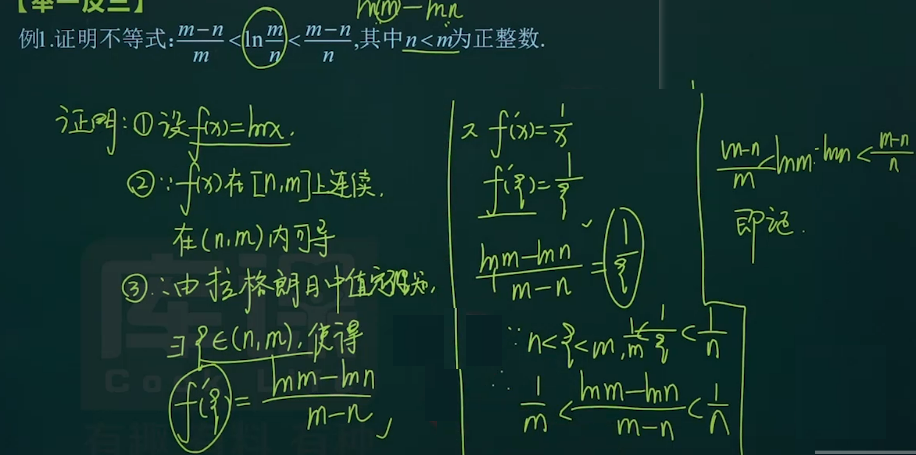 【举一反三】
lnm-lnn
例1.证明不等式:\frac{m-n}{m}<ln\frac{m}{n}<\frac{m-n}{n},其中n<m为正整数.
证明:①设f(x)=lnx.
②∵f(x)在[n,m]上连续.
在(n,m)内可导
③∴由拉格朗日中值定理知,
∃ξ∈(n,m),使得
f'(ξ)=\frac{lnm-lnn}{m-n},
又f'(x)=\frac{1}{x}
f'(ξ)=\frac{1}{ξ}
\frac{lnm-lnn}{m-n}=\frac{1}{ξ}
∵n<ξ<m,\frac{1}{m}<\frac{1}{ξ}<\frac{1}{n}
∴\frac{1}{m}<\frac{lnm-lnn}{m-n}<\frac{1}{n}
\frac{m-n}{m}<lnm-lnn<\frac{m-n}{n}
即证.